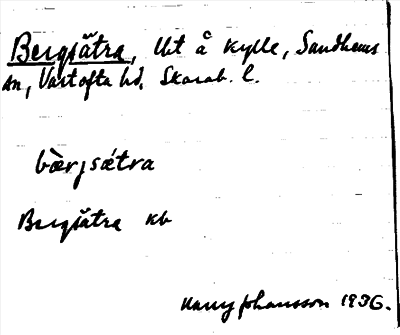 Bergsätra, Ut å Kylle, Sandhems
sn, Vartofta hd. Skarab. l.
bæ̀rjsǽtra
Bergsätra kb
Harry Johansson 1936.